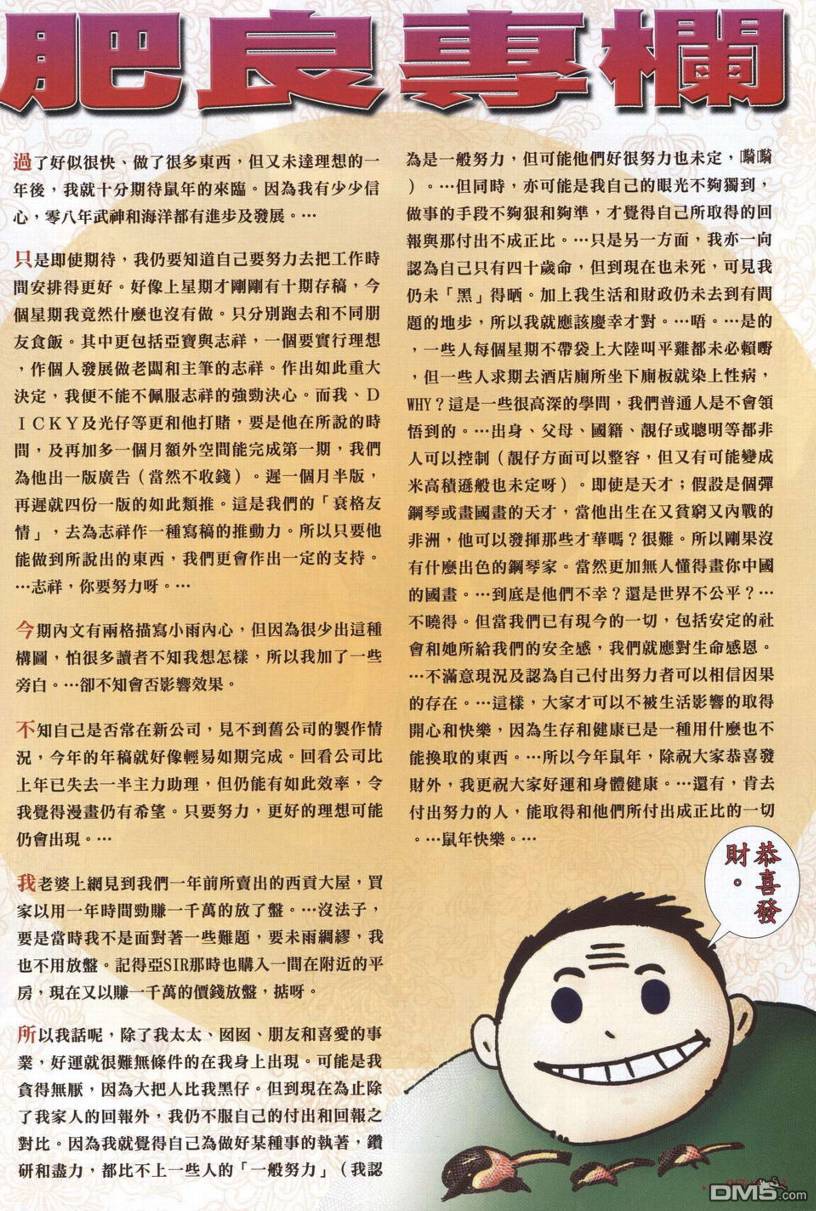 肥良專欄
過了好似很快、做了很多東西，但又未達理想的一
年後，我就十分期待鼠年的來臨。因為我有少少信
心，零八年武神和海洋都有進步及發展。…
只是即使期待，我仍要知道自己要努力去把工作時
間安排得更好。好像上星期才剛剛有十期存稿，今
個星期我竟然什麼也沒有做。只分別跑去和不同朋
友食飯。其中更包括亞寶與志祥，一個要實行理想
，作個人發展做老闆和主筆的志祥。作出如此重大
決定，我便不能不佩服志祥的強勁決心。而我、D
ICKY及光仔等更和他打賭，要是他在所說的時
間，及再加多一個月額外空間能完成第一期，我們
為他出一版廣告（當然不收錢）。遲一個月半版，
再遲就四份一版的如此類推。這是我們的「衰格友
情」，去為志祥作一種寫稿的推動力。所以只要他
能做到所說出的東西，我們更會作出一定的支持。
…志祥，你要努力呀。…
今期內文有兩格描寫小雨內心，但因為很少出這種
構圖，怕很多讀者不知我想怎樣，所以我加了一些
旁白。…卻不知會否影響效果。
不知自己是否常在新公司，見不到舊公司的製作情
況，今年的年稿就好像輕易如期完成。回看公司比
上年已失去一半主力助理，但仍能有如此效率，令
我覺得漫畫仍有希望。只要努力，更好的理想可能
仍會出現。…
我老婆上網見到我們一年前所賣出的西貢大屋，買
家以用一年時間勁賺一千萬的放了盤。…沒法子，
要是當時我不是面對著一些難題，要未雨綢繆，我
也不用放盤。記得亞SIR那時也購入一間在附近的平
房，現在又以賺一千萬的價錢放盤，掂呀。
所以我話呢，除了我太太、囡囡、朋友和喜愛的事
業，好運就很難無條件的在我身上出現。可能是我
貪得無厭，因為大把人比我黑仔。但到現在為止除
了我家人的回報外，我仍不服自己的付出和回報之
對比。因為我就覺得自己為做好某種事的執著，鑽
研和盡力，都比不上一些人的「一般努力」（我認
為是一般努力，但可能他們好很努力也未定，嘞嘞
）。…但同時，亦可能是我自己的眼光不夠獨到，
做事的手段不夠狠和夠準，才覺得自己所取得的回
報與那付出不成正比。…只是另一方面，我亦一向
認為自己只有四十歲命，但到現在也未死，可見我
仍未「黑」得晒。加上我生活和財政仍未去到有問
題的地步，所以我就應該慶幸才對。…唔。…是的
，一些人每個星期不帶袋上大陸叫平雞都未必賴嘢
，但一些人求期去酒店廁所坐下廁板就染上性病，
WHY？這是一些很高深的學問，我們普通人是不會領
悟到的。…出身、父母、國籍、靚仔或聰明等都非
人可以控制（靚仔方面可以整容，但又有可能變成
米高積遜般也未定呀）。即使是天才；假設是個彈
鋼琴或畫國畫的天才，當他出生在又貧窮又內戰的
非洲，他可以發揮那些才華嗎？很難。所以剛果沒
有什麼出色的鋼琴家。當然更加無人懂得畫你中國
的國畫。…到底是他們不幸？還是世界不公平？…
不曉得。但當我們已有現今的一切，包括安定的社
會和她所給我們的安全感，我們就應對生命感恩。
…不滿意現況及認為自己付出努力者可以相信因果
的存在。…這樣，大家才可以不被生活影響的取得
開心和快樂，因為生存和健康已是一種用什麼也不
能換取的東西。…所以今年鼠年，除祝大家恭喜發
財外，我更祝大家好運和身體健康。…還有，肯去
付出努力的人，能取得和他們所付出成正比的一切
。…鼠年快樂。…
恭喜發
財。
DM5.com